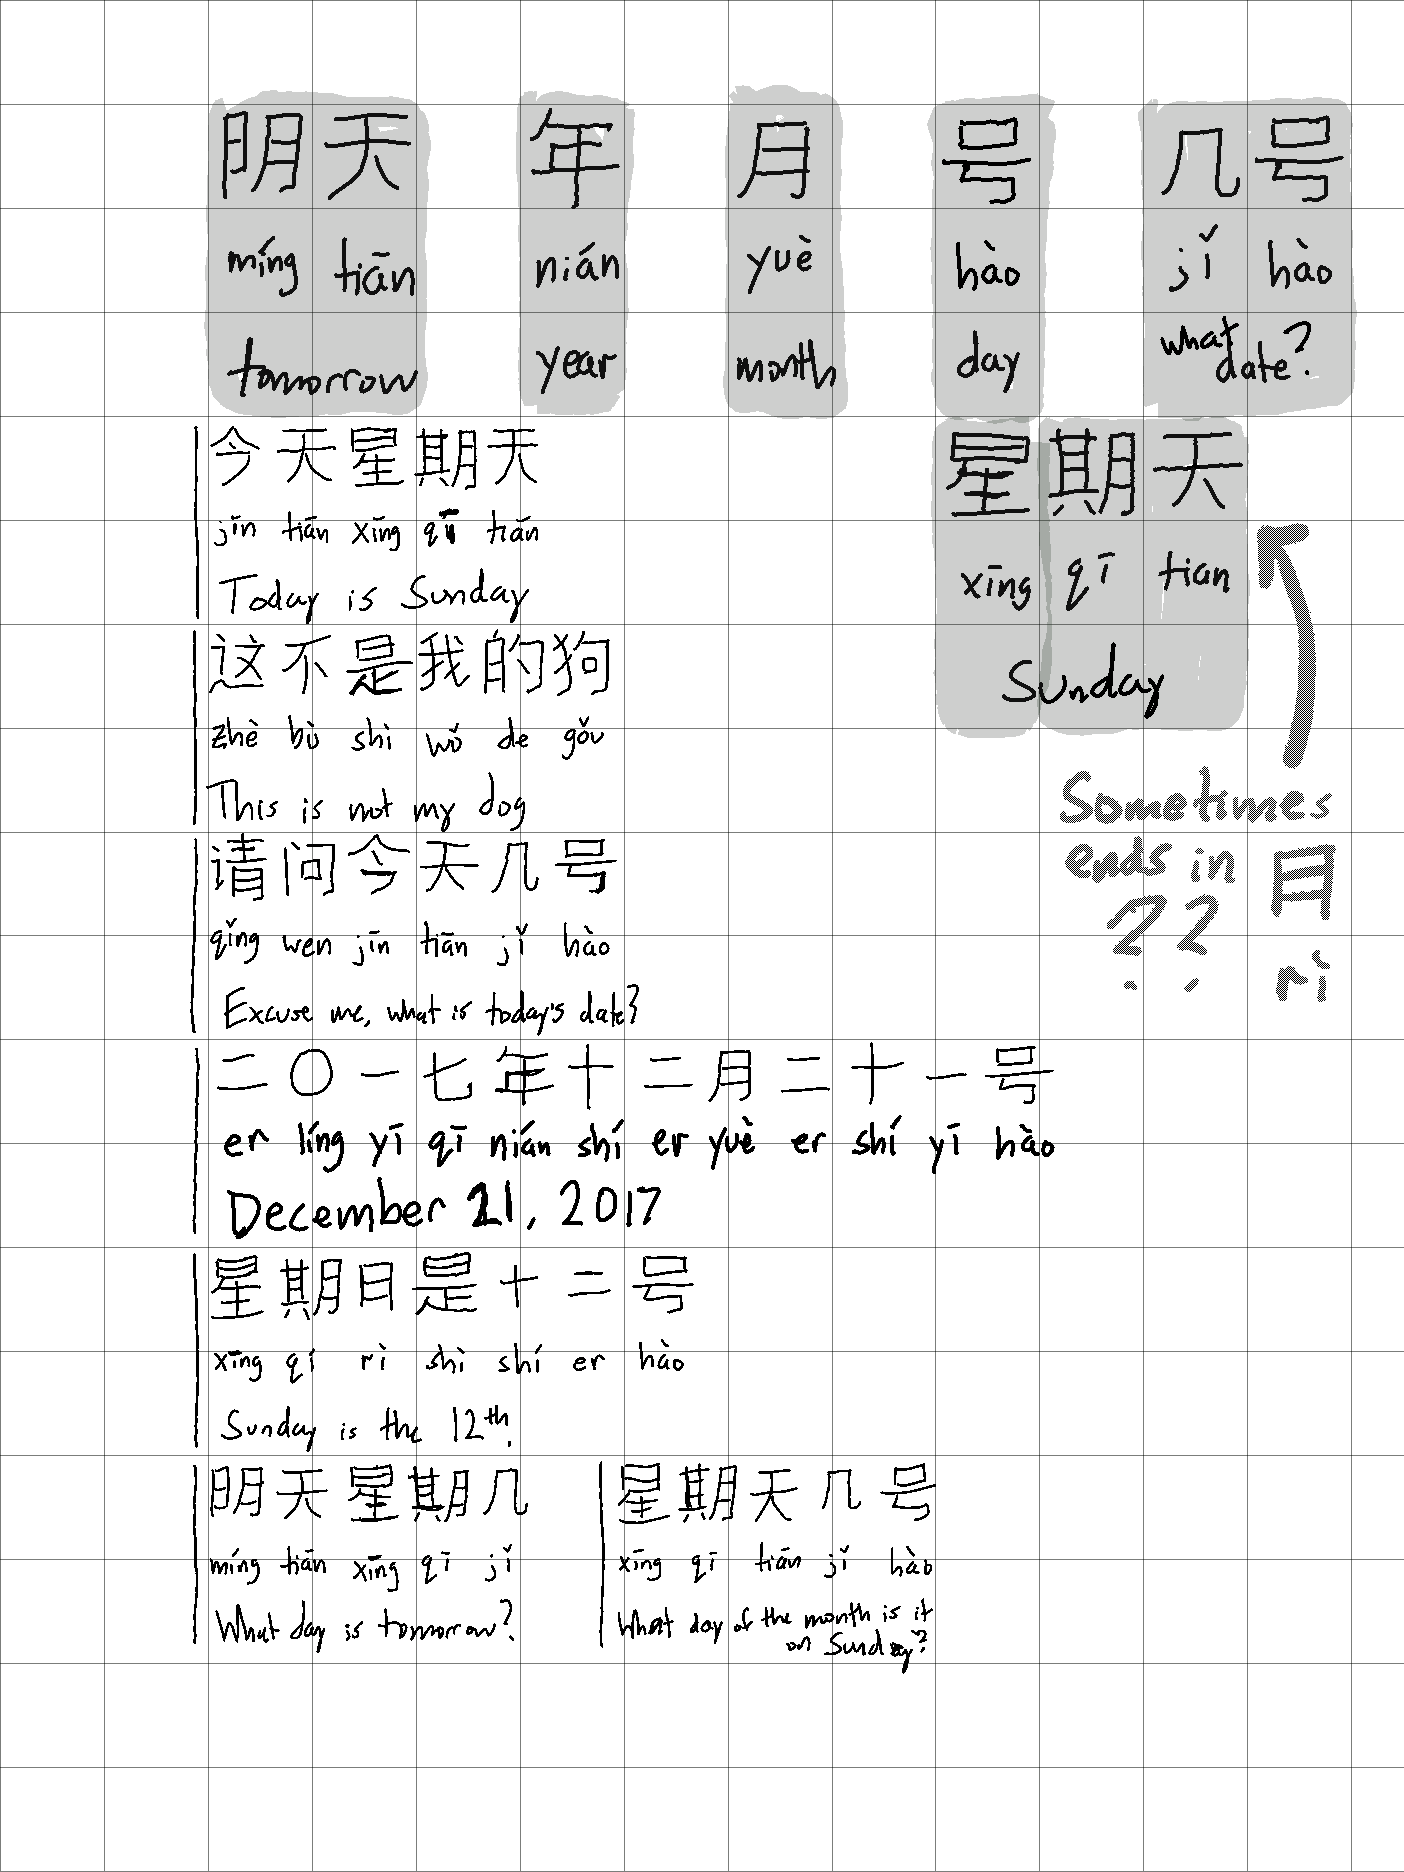 明天 年 月 号 几号
míng tiān nián yuè hào jǐ hào
tomorrow year month day what date?
今天星期天
jīn tiān xīng qī tiān
Today is Sunday
星期天
xīng qī tian
Sunday
Sometimes
ends in 日
?? rì
这不是我的狗
zhè bù shì wǒ de gǒu
This is not my dog
请问今天几号
qǐng wen jīn tiān jǐ hào
Excuse me, what is today's date?
二〇一七年十二月二十一号
er líng yī qī nián shí er yuè er shí yī hào
December 21, 2017
星期日是十二号
xīng qí rì shì shí er hào
Sunday is the 12th.
明天星期几
míng tiān xīng qī jǐ
What day is tomorrow?
星期天几号
xīng qī tiān jǐ hào
What day of the month is it
on Sunday?